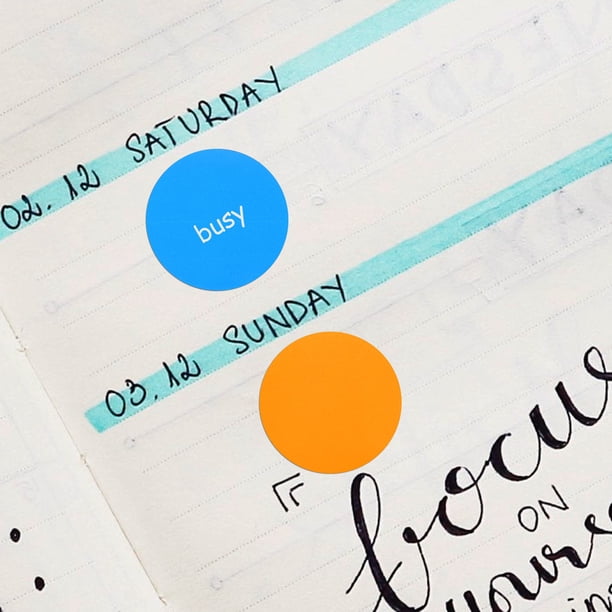 02.12 SATURDAY
busy
03.12 SUNDAY
focus
ON